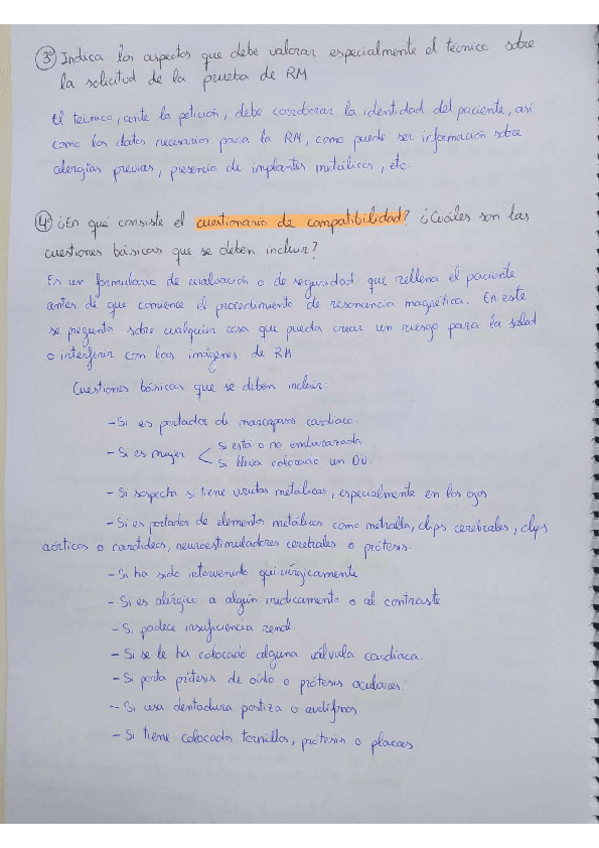 3º Indica los aspectos que debe valorar especialmente el técnico sobre
la solicitud de la prueba de RM
El técnico, ante la petición, debe corroborar la identidad del paciente, así
como los datos necesarios para la RM, como puede ser información sobre
alergias previas, presencia de implantes metálicos, etc.
4º ¿En qué consiste el cuestionario de compatibilidad? ¿Cuáles son las
cuestiones básicas que se deben incluir?
Es un formulario de evaluación o de seguridad que rellena el paciente
antes de que comience el procedimiento de resonancia magnética. En este
se pregunta sobre cualquier cosa que pueda crear un riesgo para la salud
o interferir con las imágenes de RM
Cuestiones básicas que se deben incluir:
- Si es portador de marcapasos cardiaco.
- Si es mujer < Si está o no embarazada
Si lleva colocado un DIU.
- Si sospecha si tiene virutas metálicas, especialmente en los ojos
- Si es portador de elementos metálicos como metralla, clips cerebrales, clips
aórticos o carotídeos, neuroestimuladores cerebrales o prótesis.
- Si ha sido intervenido quirúrgicamente
- Si es alérgico a algún medicamento o al contraste
- Si padece insuficiencia renal.
- Si se le ha colocado alguna válvula cardiaca.
- Si porta prótesis de oído o prótesis oculares.
- Si usa dentadura postiza o audífonos.
- Si tiene colocados tornillos, prótesis o placas